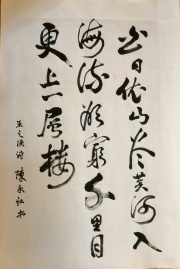 白日依山尽黄河入
海流欲窮千里目
更上一層樓
王之渙诗 陳永红书